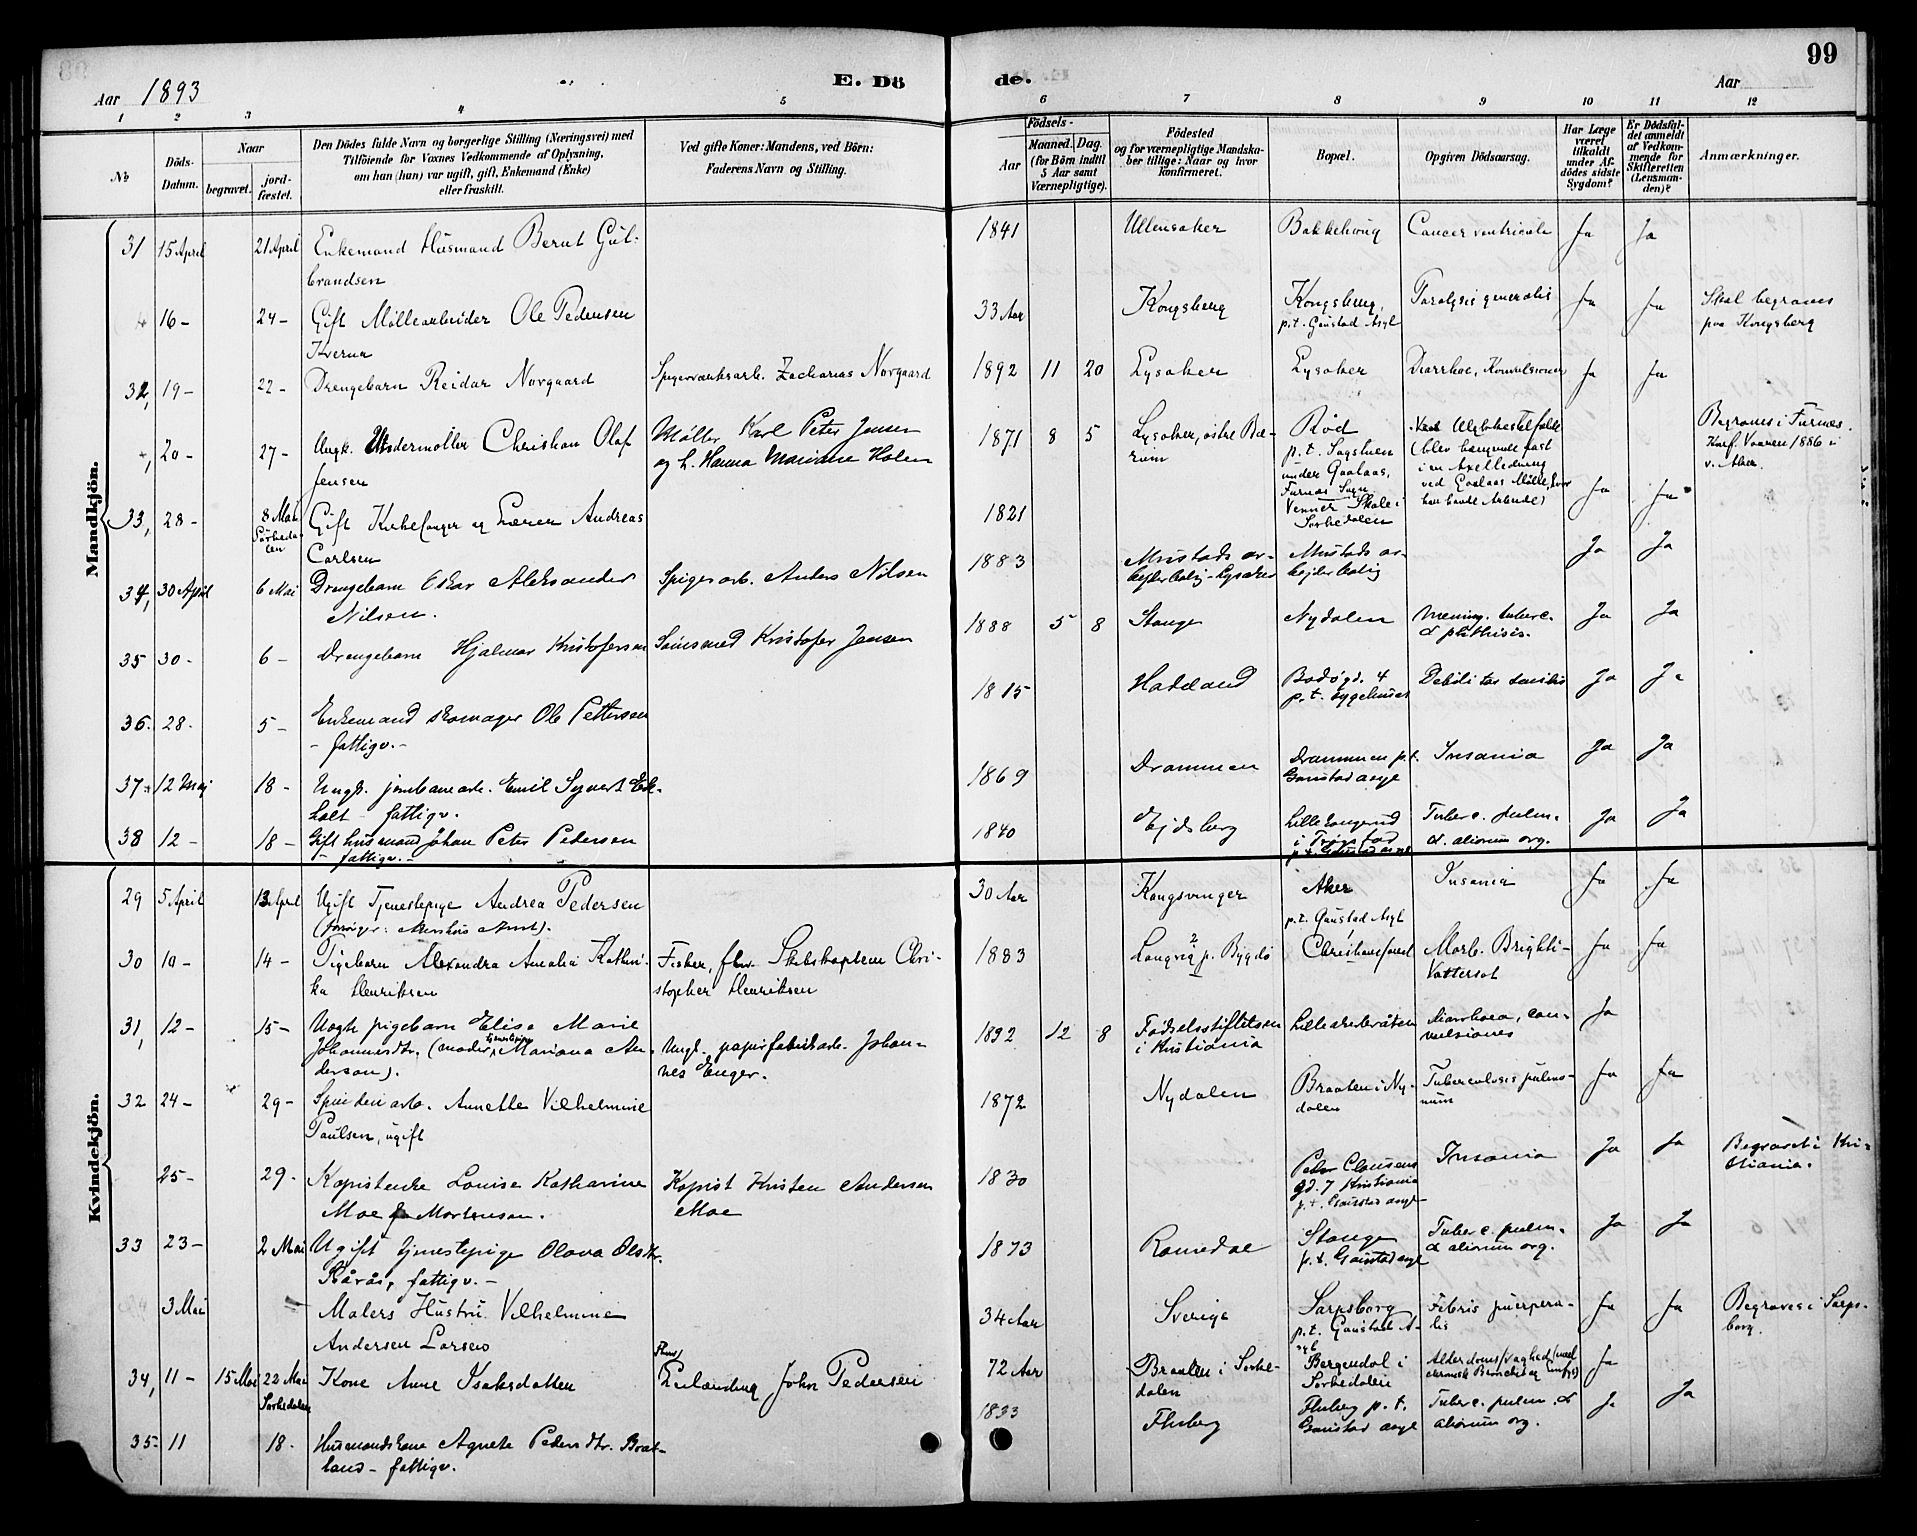 99
Aar 1893
E. Dö
de.
Aar
1 2 3 4 5 6 7 8 9 10 11 12
No
Döds-Datum.
Naar
begravet.
jord-fæstet.
Den Dödes fulde Navn og borgerlige Stilling (Næringsvei) med
Tilföiende for Voxnes Vedkommende af Oplysning,
om han (hun) var ugift, gift, Enkemand (Enke)
eller fraskilt.
Ved gifte Koner: Mandens, ved Börn:
Faderens Navn og Stilling.
Födsels-
Aar
Maaned. Dag.
(for Börn indtil
5 Aar samt
Værnepligtige).
Födested
og for værnepligtige Mandska-
ber tillige: Naar og hvor
konfirmeret.
Bopæl.
Opgiven Dödsaarsag.
Har Læge
været
tilkaldt
under Af-
dödes sidste
Sygdom?
Er Dödsfal-
det anmeldt
af Vedkom-
mende for
Skifteretten
(Lensman-
den)?
Anmærkninger.
Mandkjön.
31 15 April 21 April Enkemand Husmand Bernt Gul-
brandsen
1841 Ullensaker Bakkehoug Cancer ventriculi Ja Ja
16- 24- Gift Møllearbeider Ole Pedersen
Kverna
33 Aar Kongsberg Kongsberg,
p.t. Gaustad Asyl
Paralysis generalis Ja Ja Skal begraves
paa Kongsberg
32, 19- 22- Drengebarn Reidar Norgaard Spigerværksarb. Zacharias Norgaard
1892 11 20 Lysaker Lysaker Diarrhoe, Konvulsioner Ja Ja
20- 27- Ungk. Undermøller Christian Olaf
Jensen
Møller Karl Peter Jensen
og h. Hanna Mariane Holen
1871 8 5 Lysaker, østre Bæ-
rum
Rød
p.t. Sagstuen
under Gaalaas,
Furnæs Sogn
Ved Ulykkestilfælde
(blev hængende fast
i en Axelledning
ved Gaalaas Mølle, hvor
han havde Arbeide)
Ja Ja
Begraves i Furnæs.
Konf. Vaaren 1886 i
v. Aker.
33, 28- 8 Mai
Sørkeda-
len
Gift Kirkesanger og Lærer Andreas
Carlsen
1821 Venner Skole i
Sørkedalen
34, 30 April 6 Mai Drengebarn Oskar Aleksander
Nilsen.
Spigerarb. Anders Nilsen
1883 Mustads ar-
bejderbolig-Lysaker
Mustads ar-
bejderbolig
Ja Ja
35 30- 6- Drengebarn Hjalmar Kristofersen Kristofer Jensen
1888 5 8 Stange Nydalen Mening. tuberc.
& phthisis.
Ja Ja
36. 28- 5- Enkemand skomager Ole Pettersen
- fattigv.-
1815 Hadeland Bodøgd. 4
p.t. sygehuset
Debilitas senilis Ja Ja
37 12 Maj 18- Ungk. jernbanearb. Emil Syvert Ek-
holt - fattigv.
1869 Drammen Drammen p.t.
Gaustad asyl
Insania Ja Ja
38 12- 18- Gift husmand Johan Peter Pedersen
- fattigv.-
1840 Ejdsberg i Trøgstad
p.t. Gaustad asyl
Tuberc. pulm.
& aliorum org.
Ja Ja
Kvindekjön.
29 5 April 13 April Ugift Tjenestepige Andrea Pedersen
(forsørges: Akershus Amt).
30 Aar Kongsvinger Aker
p.t. Gaustad Asyl
Insania Ja Ja
30 10- 14- Pigebarn Alexandra Amalia Kathri-
ka Henriksen
Fisker, fhv. Skibskaptein Chri-
stopher Henriksen
1883 Langvig p. Bygdø Christianssund Morb. Brightii-
Vattersot
Ja Ja
31, 12- 15- Uægte pigebarn Elise Marie
Johannesdtr. (moder, tjenestepige Mariana An-
derson).
Ungk. papirfabrikarb. Johan-
nes Enger.
1892 12 8 Fødselsstiftelsen
i Kristiania
Lilleakerbråten Diarrhoea, con-
vulsiones
Ja
32 24- 29- Spinderiarb. Annette Vilhelmine
Paulsen, ugift
1872 Nydalen Braaten i Ny-
dalen
Tuberculosis pulmo-
num
Ja Ja
25- 29- Kopistenke Louise Katharine
Moe f. Mortensen.
Kopist Kristen Andersen
Moe
1830 Peder Clausens
gd. 7 Kristiania
p.t. Gaustad asyl
Insania Ja Ja Begravet i Kri-
stiania.
33 23- 2 Mai Ugift tjenestepige Olava Olsdtr.
Rårås, fattigv.-
1873 Romedal Stange
p.t. Gaustad asyl
Tuberc. pulm.
& aliorum org.
Ja Ja
3 Mai Malers Hustru Vilhelmine
Andersen Larsen
34 Aar Sverige Sarpsborg
p.t. Gaustad A-
syl
Febris puerpera-
lis
Ja Ja Begraves i Sarps-
borg.
34, 11- 15 Mai 22 Mai
Sørkedalen
Kone Anne Isaksdatter
Fhv.
John Pedersen
72 Aar Braaten i Sørke-
dalen
Bergendal i
Sørkedalen
Alderdomssvaghed (med
chronisk Bronchit og Emfys)
Ja
35- 11 18- Husmandskone Agnete Pedersdtr. Braat-
land - fattigv.
1833 Fluberg Fluberg p.t.
Gaustad asyl
Tuberc. pulm. &
aliorum org.
Ja Ja